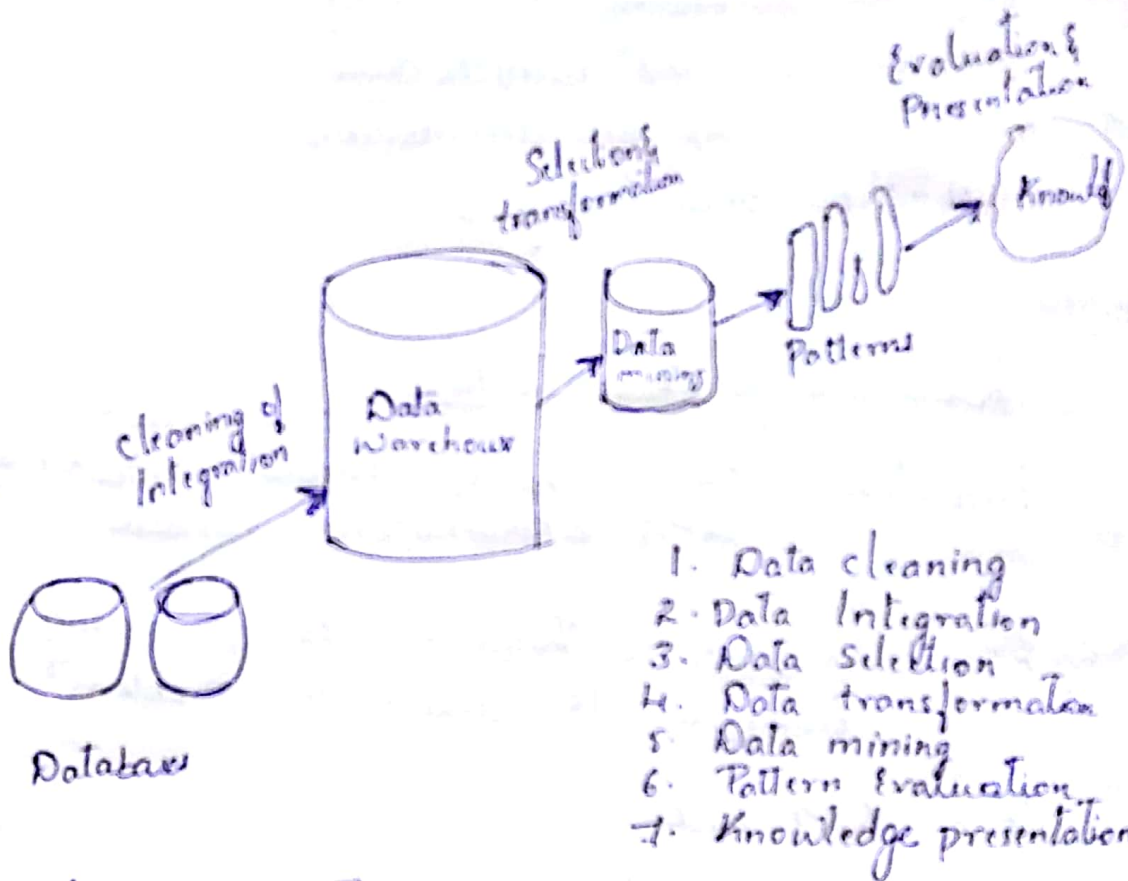 Evaluation &
Presentation
Selection &
transformation
Knowlg
Data
mining
Patterns
Data
Warehouse
cleaning of
Integration
Databases
1. Data cleaning
2. Data Integration
3. Data Selection
4. Data transformation
5. Data mining
6. Pattern Evaluation
7. Knowledge presentation